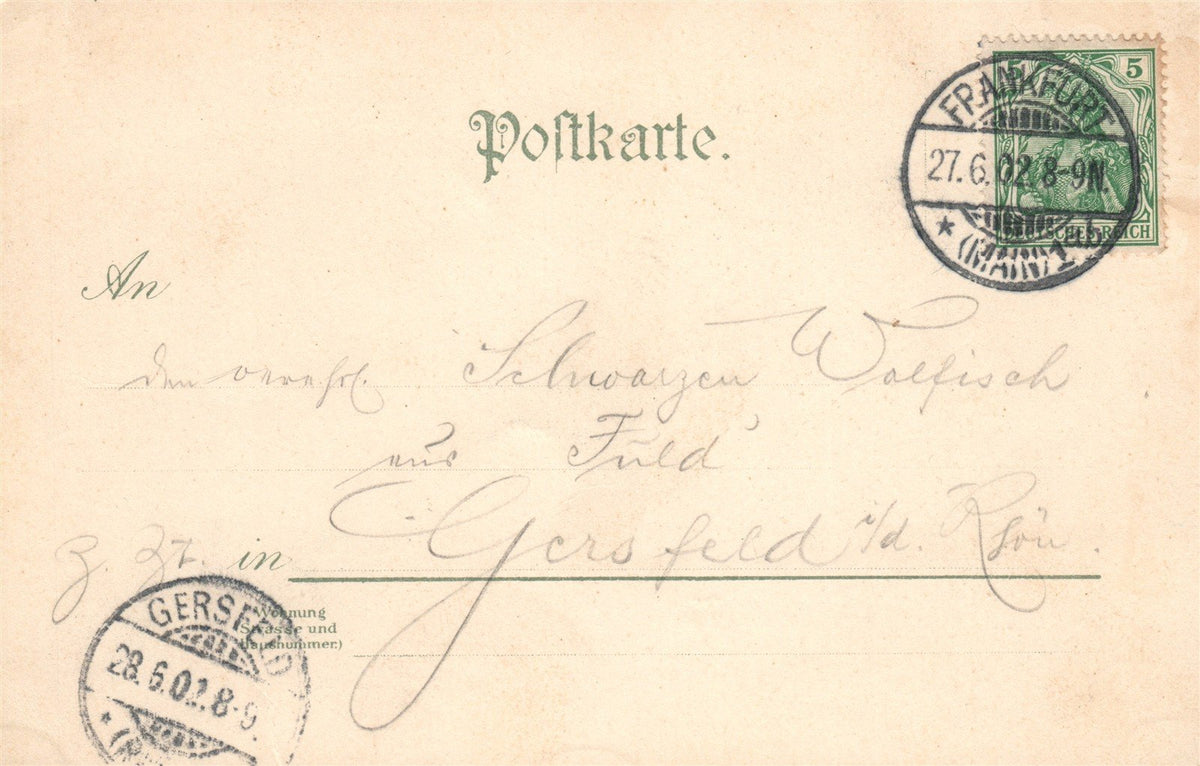 Postkarte.
5 5
DEUTSCHES REICH
FRANKFURT
27.6.02.8-9N.
* (MAIN) 1
An
den verehrl. Schwarzen Walfisch
aus Fuld
z. Zt. in Gersfeld i/d. Rhön.
(Wohnung
Strasse und
Hausnummer.)
GERSFELD
28.6.02.8-9.
*